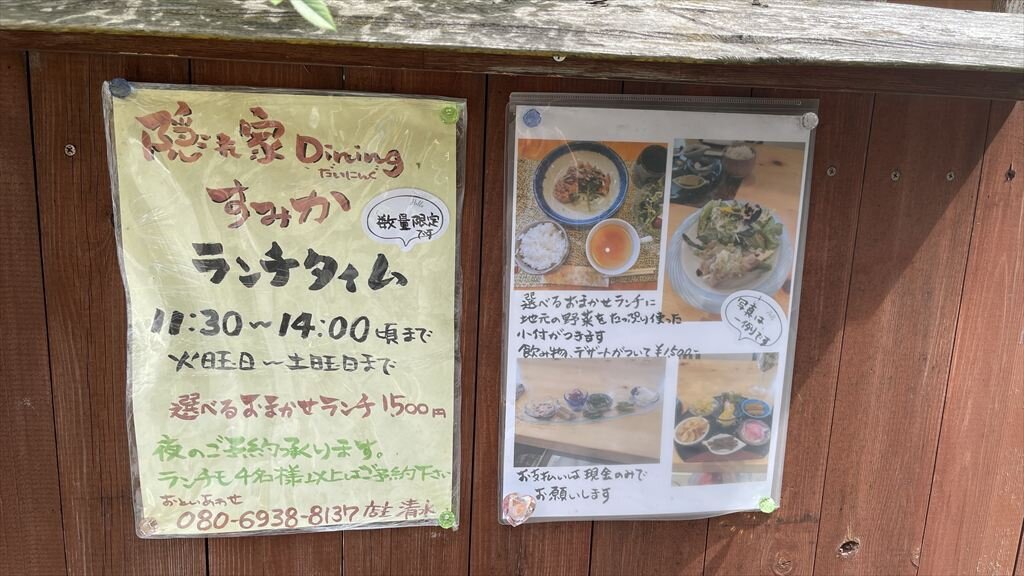 隠れ家 Dining
だいにんぐ
すみか
Hello
数量限定
です
ランチタイム
11:30〜14:00頃まで
火曜日〜土曜日まで
選べるおまかせランチ1500円
夜のご予約承ります。
ランチモ4名様以上はご予約下さい
おといあわせ
080-6938-8137 店主 清水
選べるおまかせランチに
地元の野菜をたっぷり使った
小付がつきます
飲み物、デザートがついて¥1500-
写真は
一例です
お支払いは現金のみで
お願いします